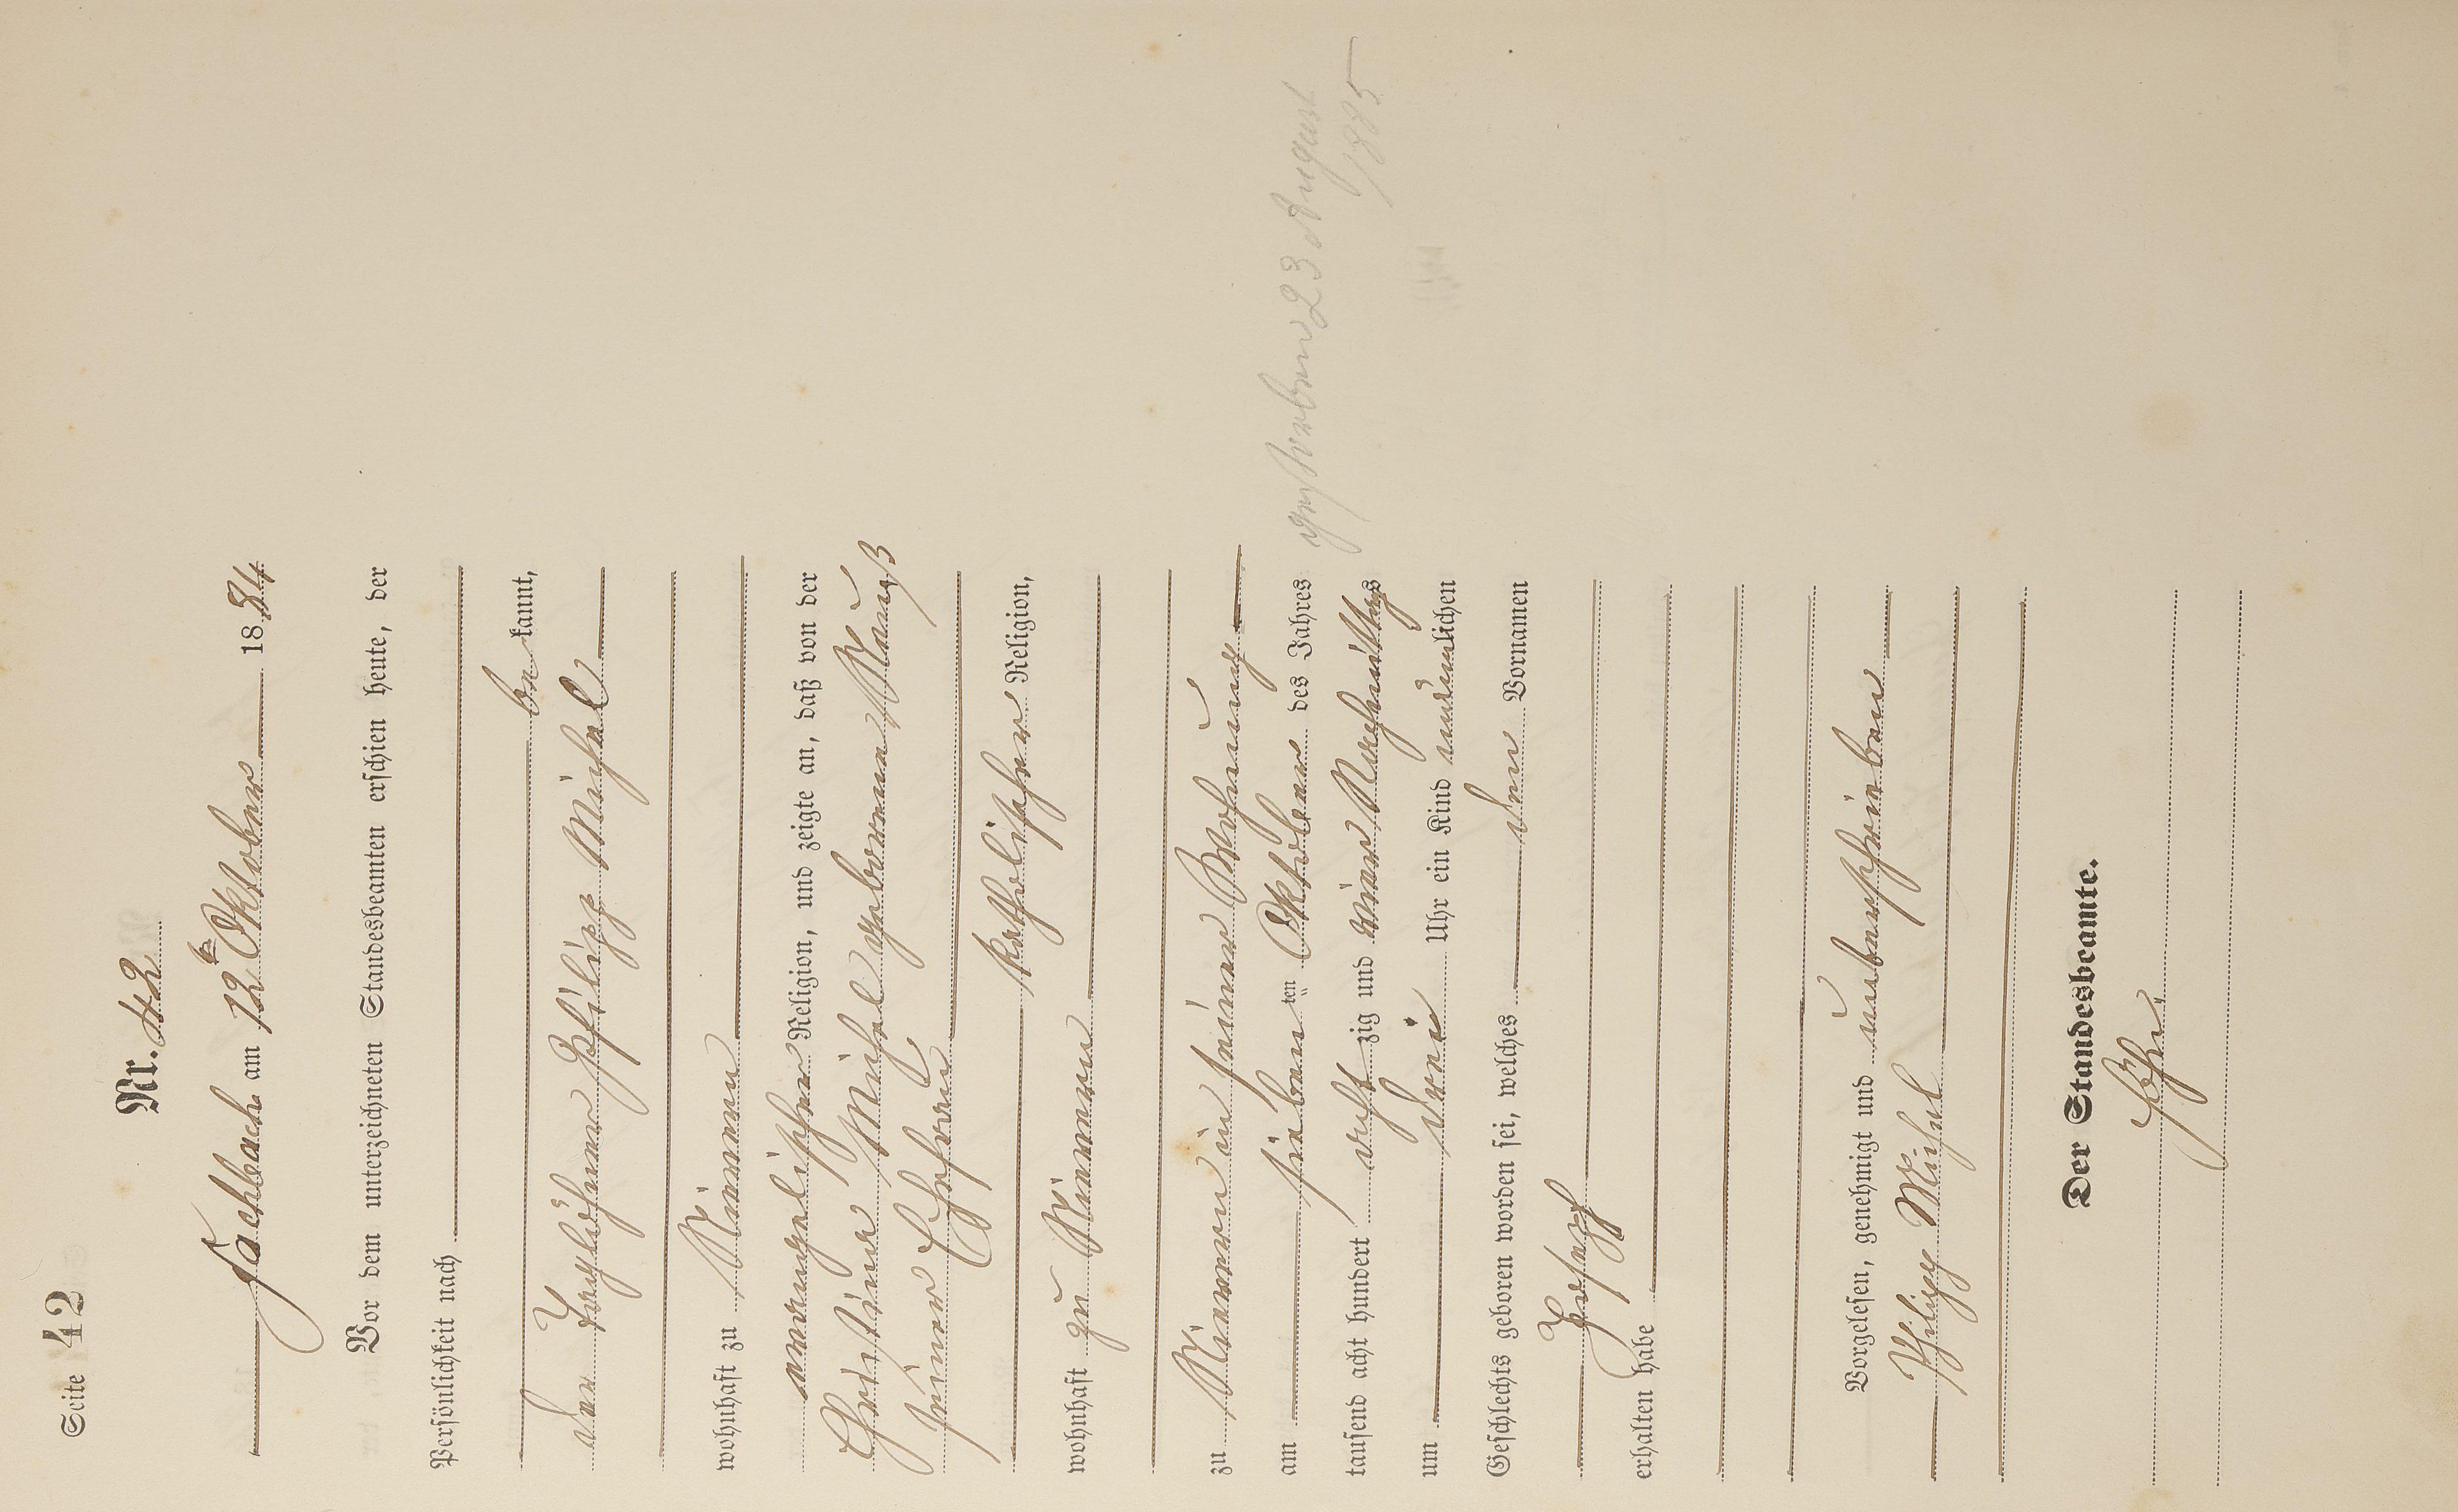 Seite 42
Nr. 42
Fachbach am 12ten Oktober 1884
Vor dem unterzeichneten Standesbeamten erschien heute, der
Persönlichkeit nach
be kannt,
der Taglöhner Philipp Michel
wohnhaft zu Nievern
evangelischer Religion, und zeigte an, daß von der
Christina Michel geborene
seiner Ehefrau
katholischer Religion,
wohnhaft zu Nievern
zu Nievern in seiner Wohnung
am sieben ten Oktober des Jahres
tausend acht hundert acht zig und vier Nachmittags
um drei Uhr ein Kind männlichen
Geschlechts geboren worden sei, welches den Vornamen
Joseph
erhalten habe
Vorgelesen, genehmigt und unterschrieben
Philipp Michel
Der Standesbeamte.
gestorben 23 August
1885